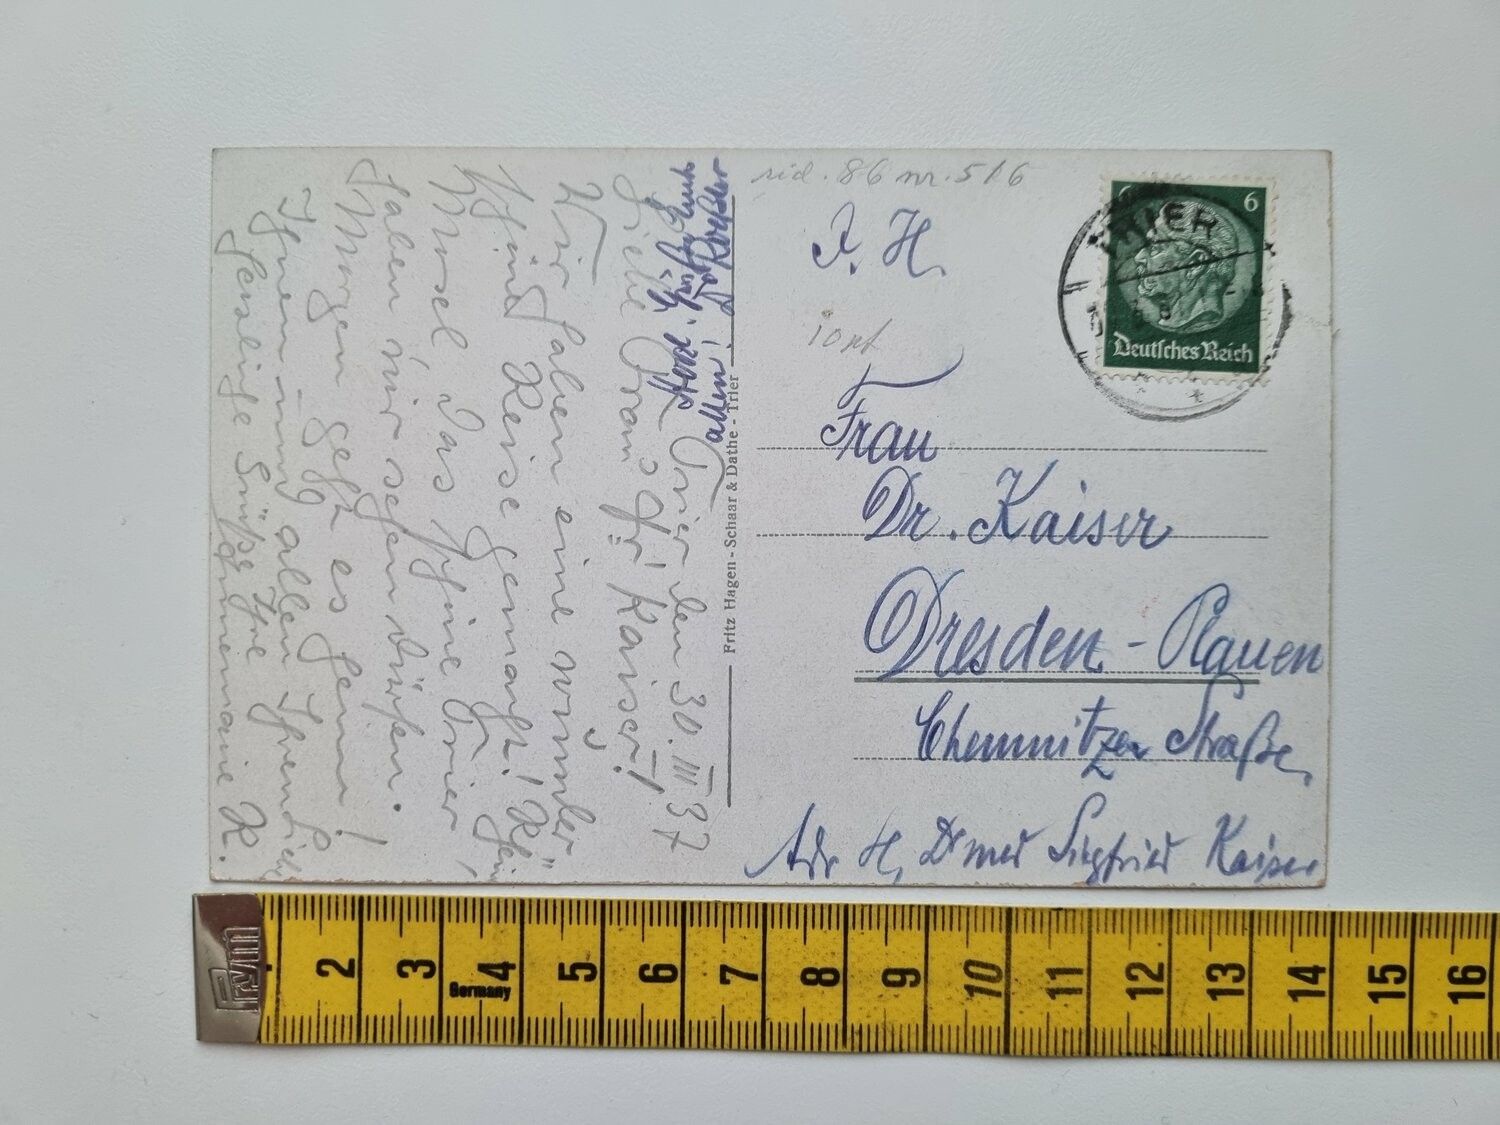 Trier den 30. III 37
Liebe Frau Dr. Kaiser!
Wir haben eine
schöne Reise gemacht! Rhein,
Mosel das schöne Trier
haben wir sehen dürfen.
Morgen geht es heim!
Ihnen und allen Ihren
herzliche Grüße Ihre
Annemarie K.
Herzl. Grüße Ihnen
allen! Dr Koeßler
Fritz Hagen - Schaar & Dathe - Trier
nr. 516
10 pf
TRIER
6
Deutsches Reich
Frau
Dr. Kaiser
Dresden - Plauen
Chemnitzer Straße
Adr H. Dr med Siegfried Kaiser
Prym
2 3 4 5 6 7 8 9 10 11 12 13 14 15 16
Germany